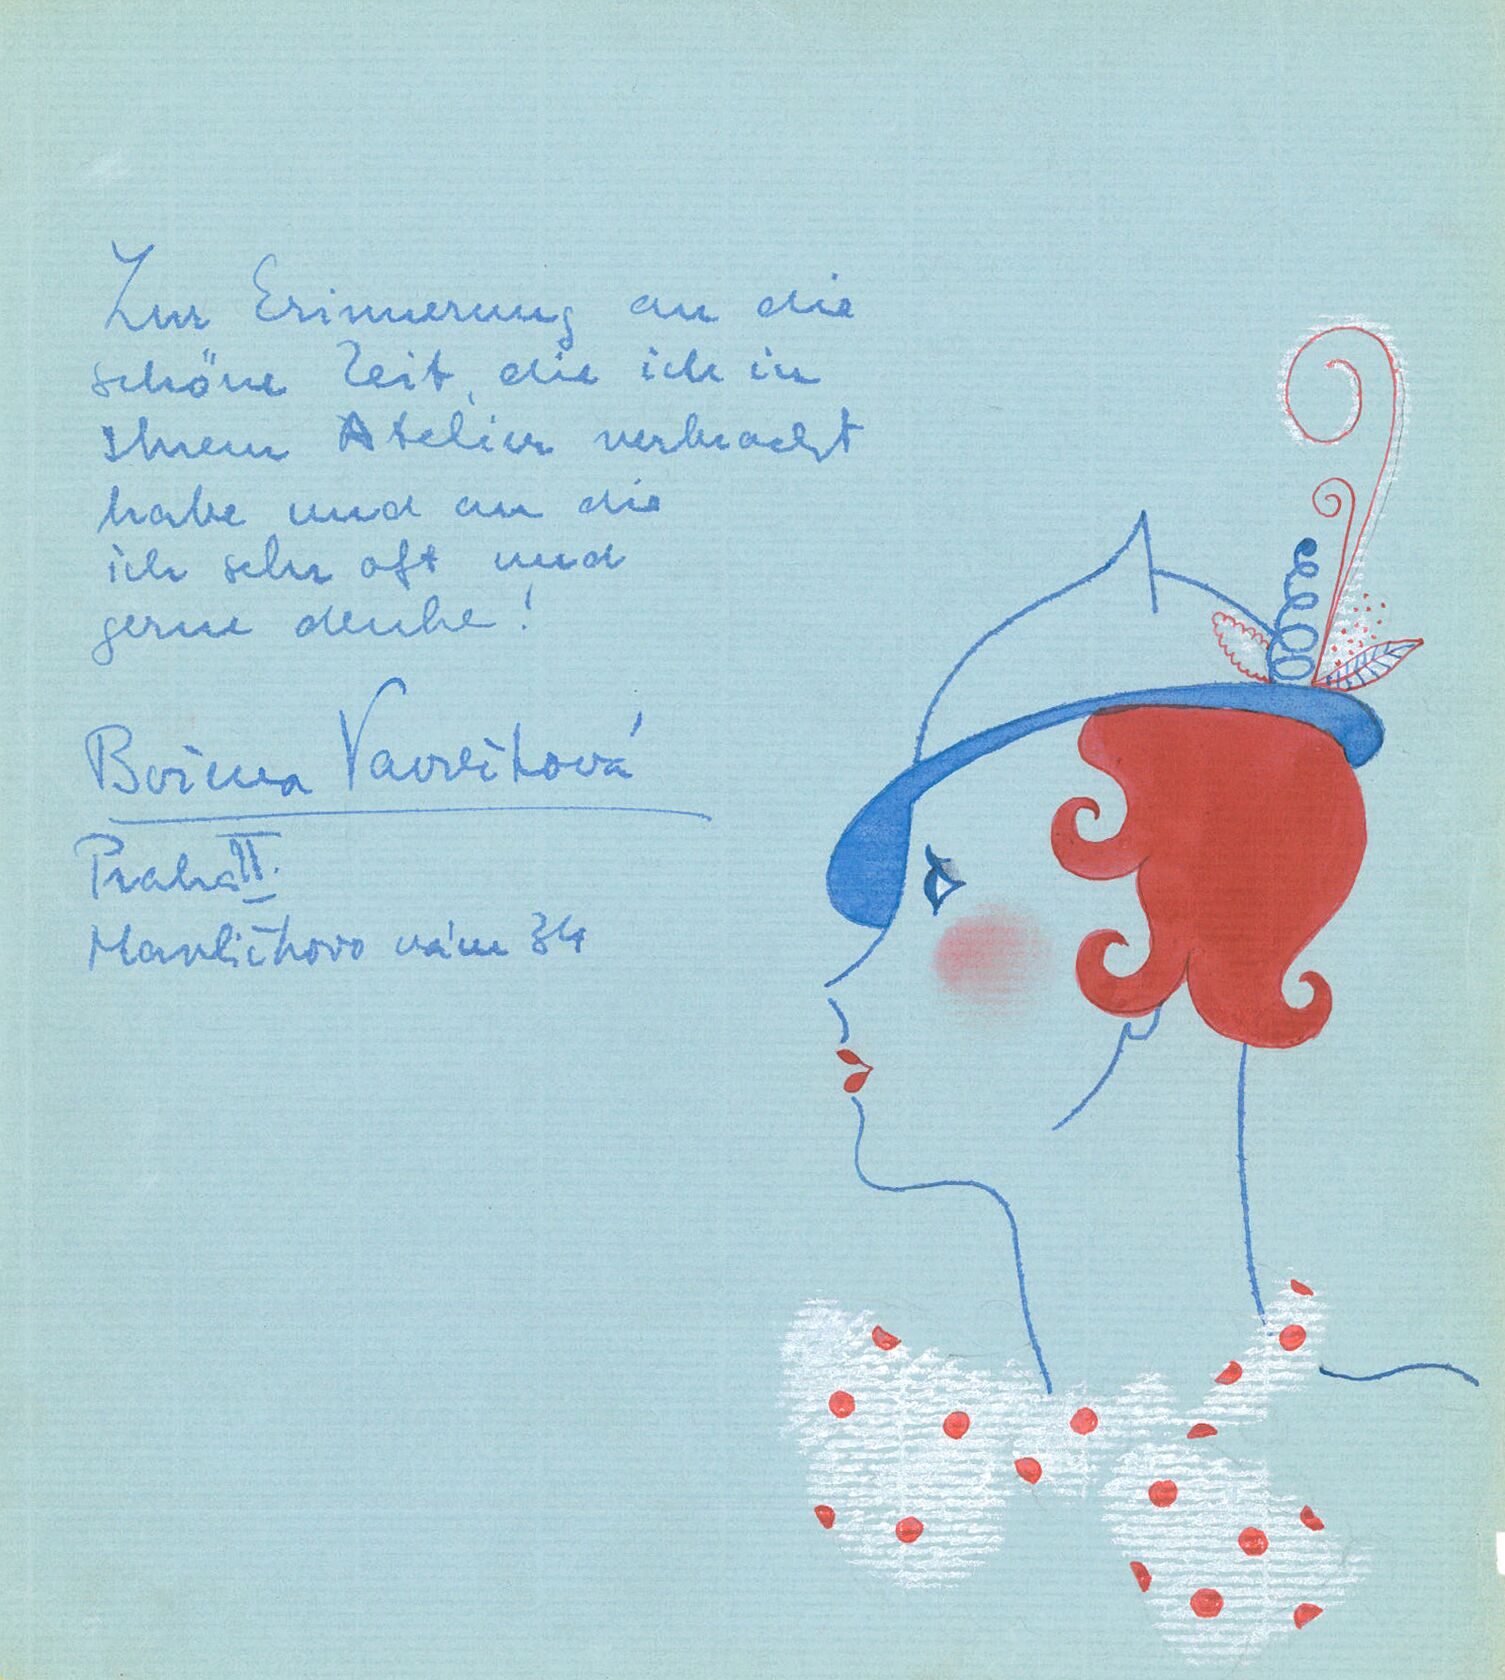 Zur Erinnerung an die
schöne Zeit, die ich in
Ihrem Atelier verbracht
habe und an die
ich sehr oft und
gerne denke!
Božena Vavrečková
Praha II.
Havlíčkovo nám 34